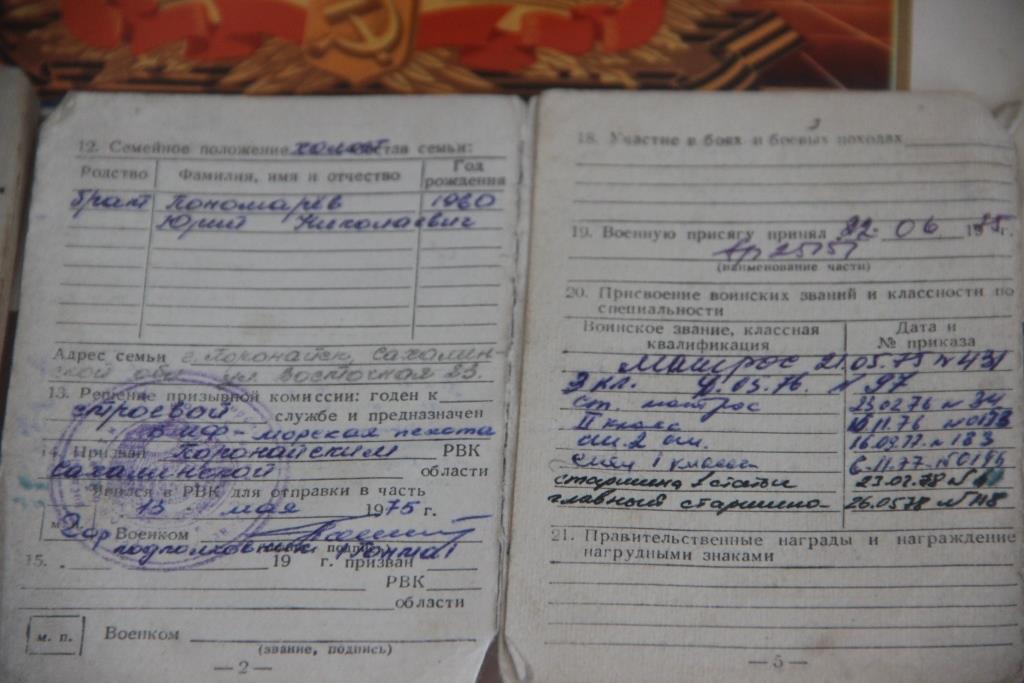 12. Семейное положение холост состав семьи:
Родство Фамилия, имя и отчество Год рождения
брат Пономарёв 1960
Юрий Николаевич
Адрес семьи г. Поронайск, Сахалин-
ской обл. ул Восточная 23.
13. Решение призывной комиссии: годен к
строевой службе и предназначен
ВМФ - морская пехота
14. Призван Поронайским РВК
Сахалинской области
Явился в РВК для отправки в часть
13 мая 1975 г.
м. Военком
подполковник
15. 19 г. призван
РВК
области
м. п. Военком
(звание, подпись)
— 2 —
18. Участие в боях и боевых походах
19. Военную присягу принял 22. 06 1975 г.
вр 25151
(наименование части)
20. Присвоение воинских званий и классности по
специальности
Воинское звание, классная квалификация Дата и № приказа
Матрос 21.05.75 № 431
3 кл. 9.03.76. № 97
ст. матрос 23.02.76 № 34
II класс 10.11.76
ст. 2 ст. 16.09.77 № 183
спец 1 класса 6.11.77. № 0196
старшина 1 статьи 23.02.78 №
главный старшина 26.05.78 № 118
21. Правительственные награды и награждение
нагрудными знаками
— 5 —